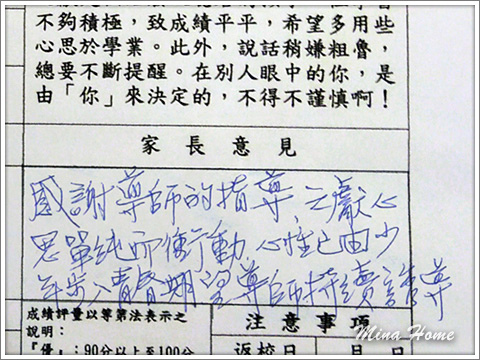 不夠積極，致成績平平，希望多用些
心思於學業。此外，說話稍嫌粗魯，
總要不斷提醒。在別人眼中的你，是
由「你」來決定的，不得不謹慎啊！
家長意見
感謝導師的指導，云獻心
思單純而衝行動，心性已由少
年步入青春期望導師持續諄導
成績評量以等第法表示之
說明：
『優』：90分以上至100分
注意事項
返校日 月 日
Mina Home